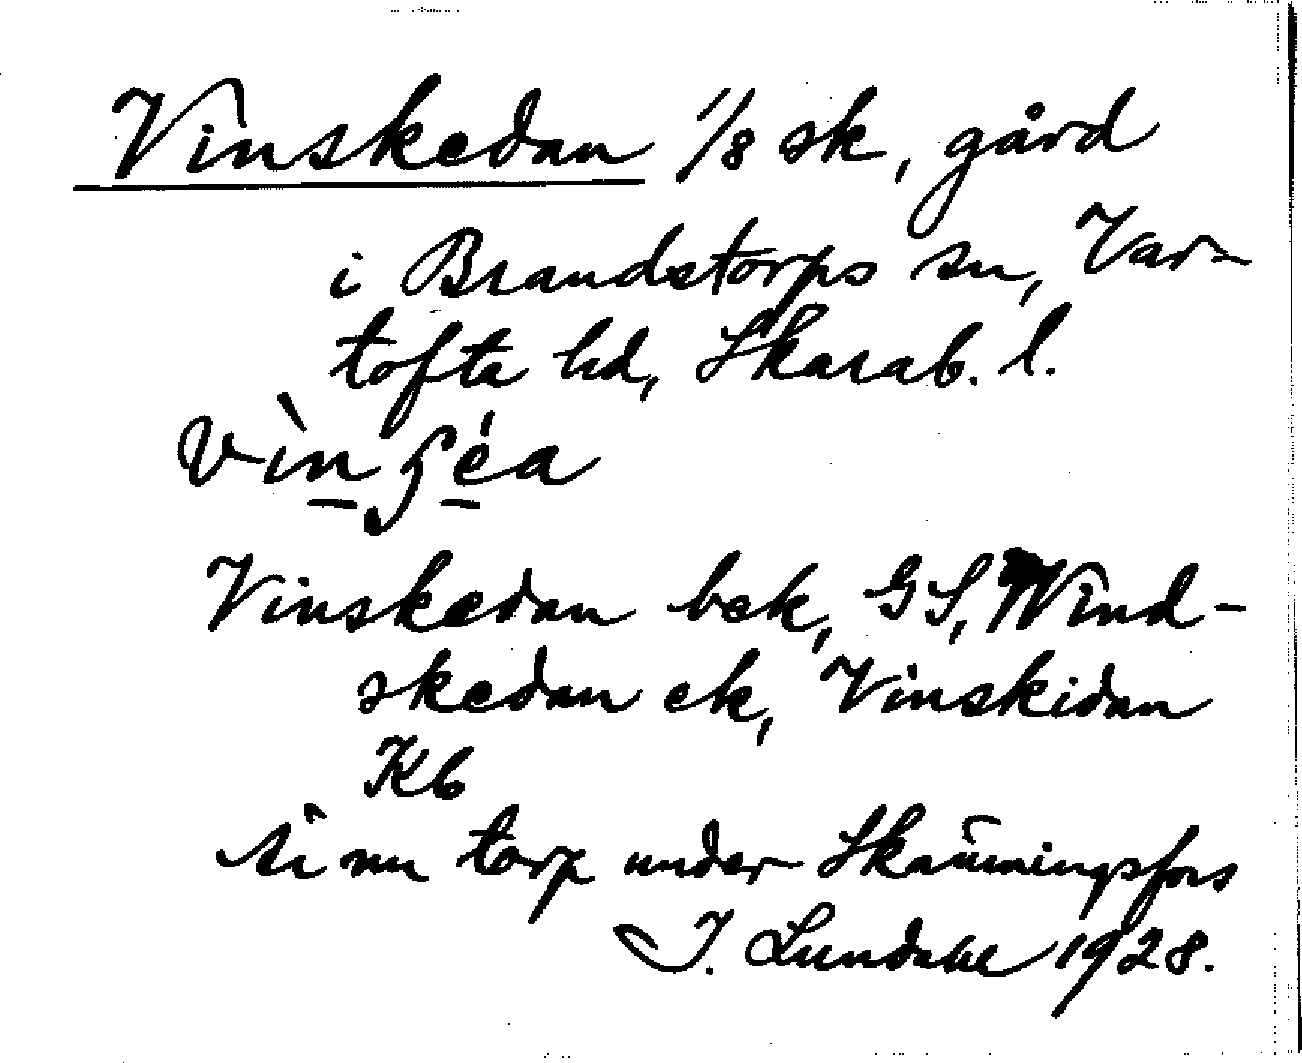 Vinskedan 1/8 sk, gård
i Brandstorps sn, Var-
tofta hd, Skarab. l.
Vinskedan bek, GS, Wind-
skedan ek, Vinskidan
Kb
Är nu torp under Skämningsfors
J. Lundahl 1928.